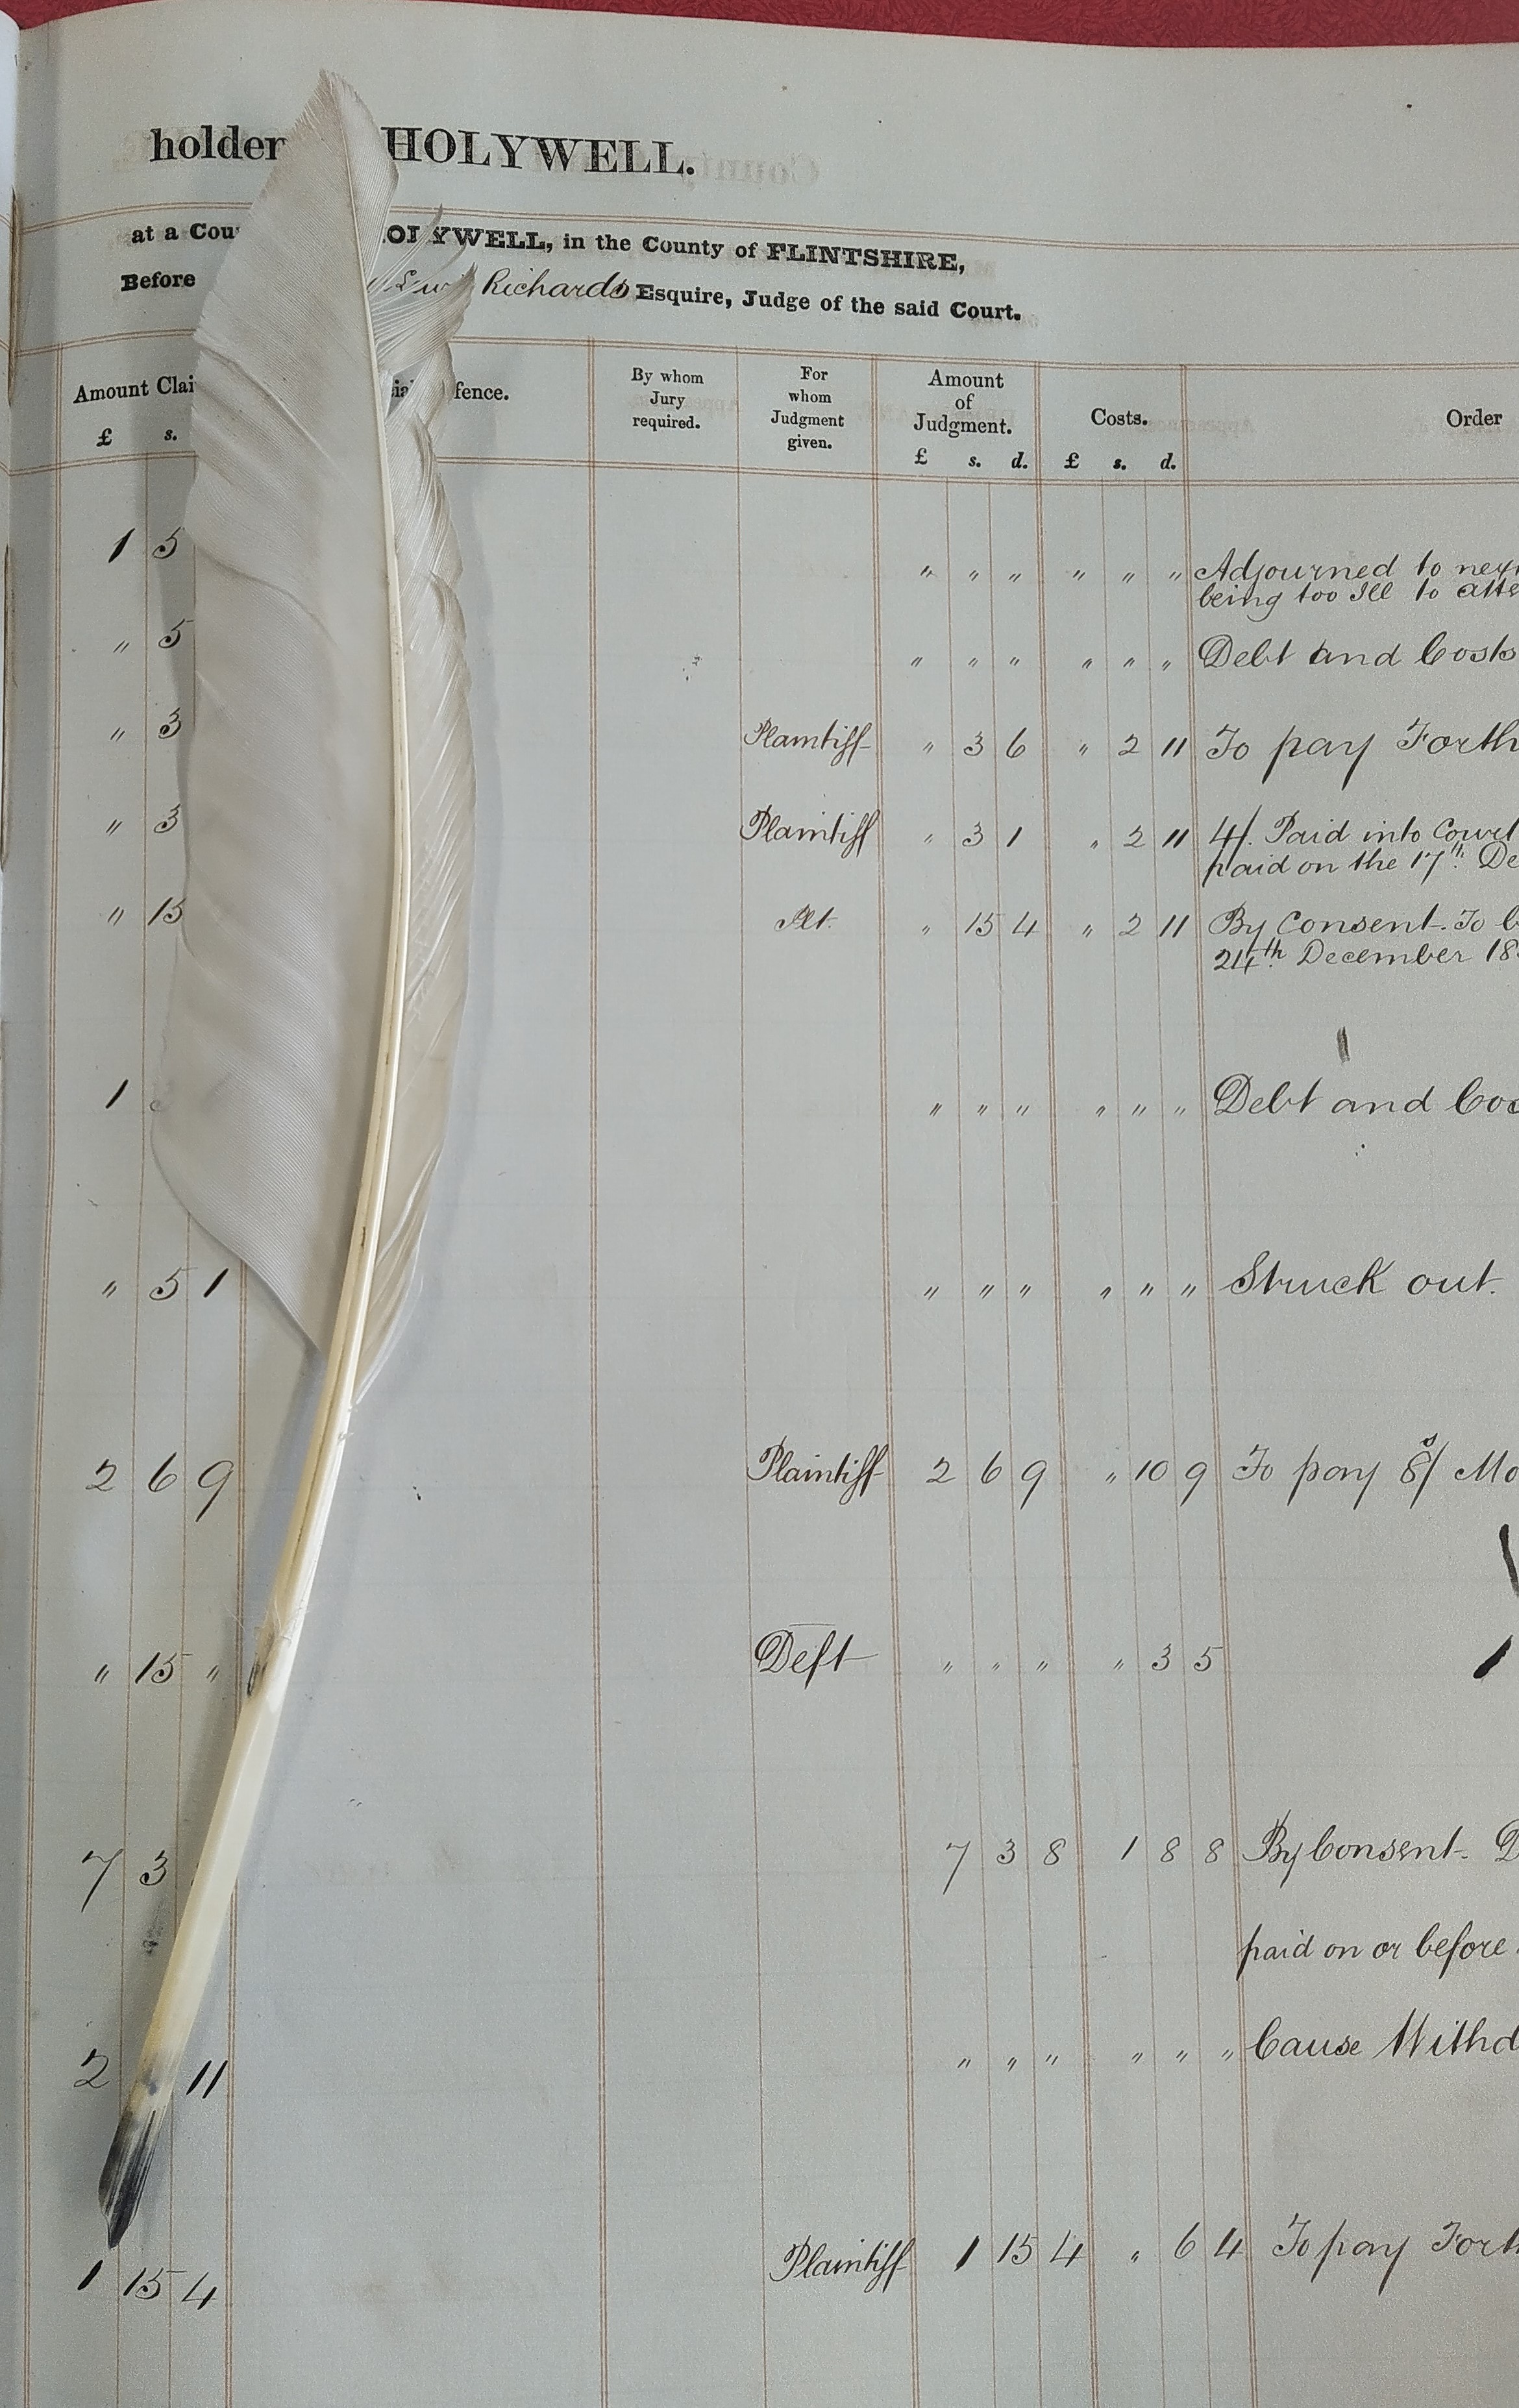 holder HOLYWELL.
at a Cou OLYWELL, in the County of FLINTSHIRE,
Before Richards Esquire, Judge of the said Court.
Amount Clai fence. By whom Jury required. For whom Judgment given. Amount of Judgment. Costs. Order
£ s. £ s. d. £ s. d.
1 5 " " " " " " Adjourned to nex
being too Ill to atte
" 5 " " " " " " Debt and Costs
" 3 Plaintiff " 3 6 " 2 11 To pay Forth
" 3 Plaintiff " 3 1 " 2 11 4/. Paid into Court
paid on the 17th. De
" 15 Plt. " 15 4 " 2 11 By Consent. To b
24th. December 18
1 " " " " " " Debt and Cos
" 5 1 " " " " " " Struck out.
2 6 9 Plaintiff 2 6 9 " 10 9 To pay 8s/ Mo
" 15 " Deft " " " " 3 5
7 3 7 3 8 1 8 8 By Consent. D
paid on or before
2 11 " " " " " " Cause Withd
1 15 4 Plaintiff 1 15 4 " 6 4 To pay Forth